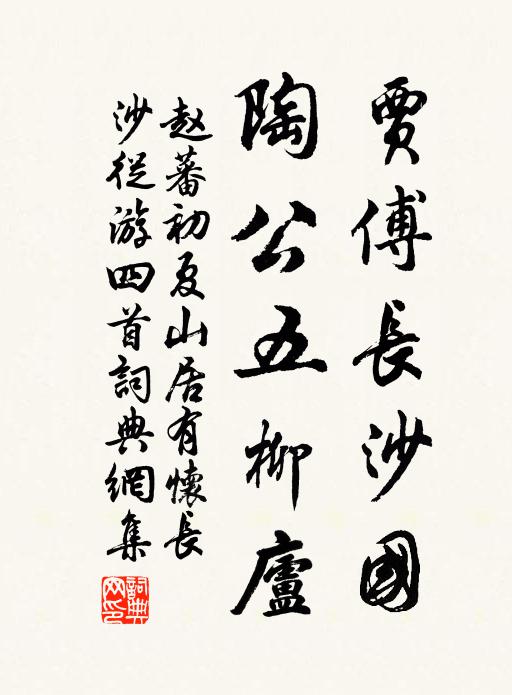 賈傅長沙國
陶公五柳廬
赵蕃初夏山居有懷長
沙從游四首詞典網集
詞典
網印